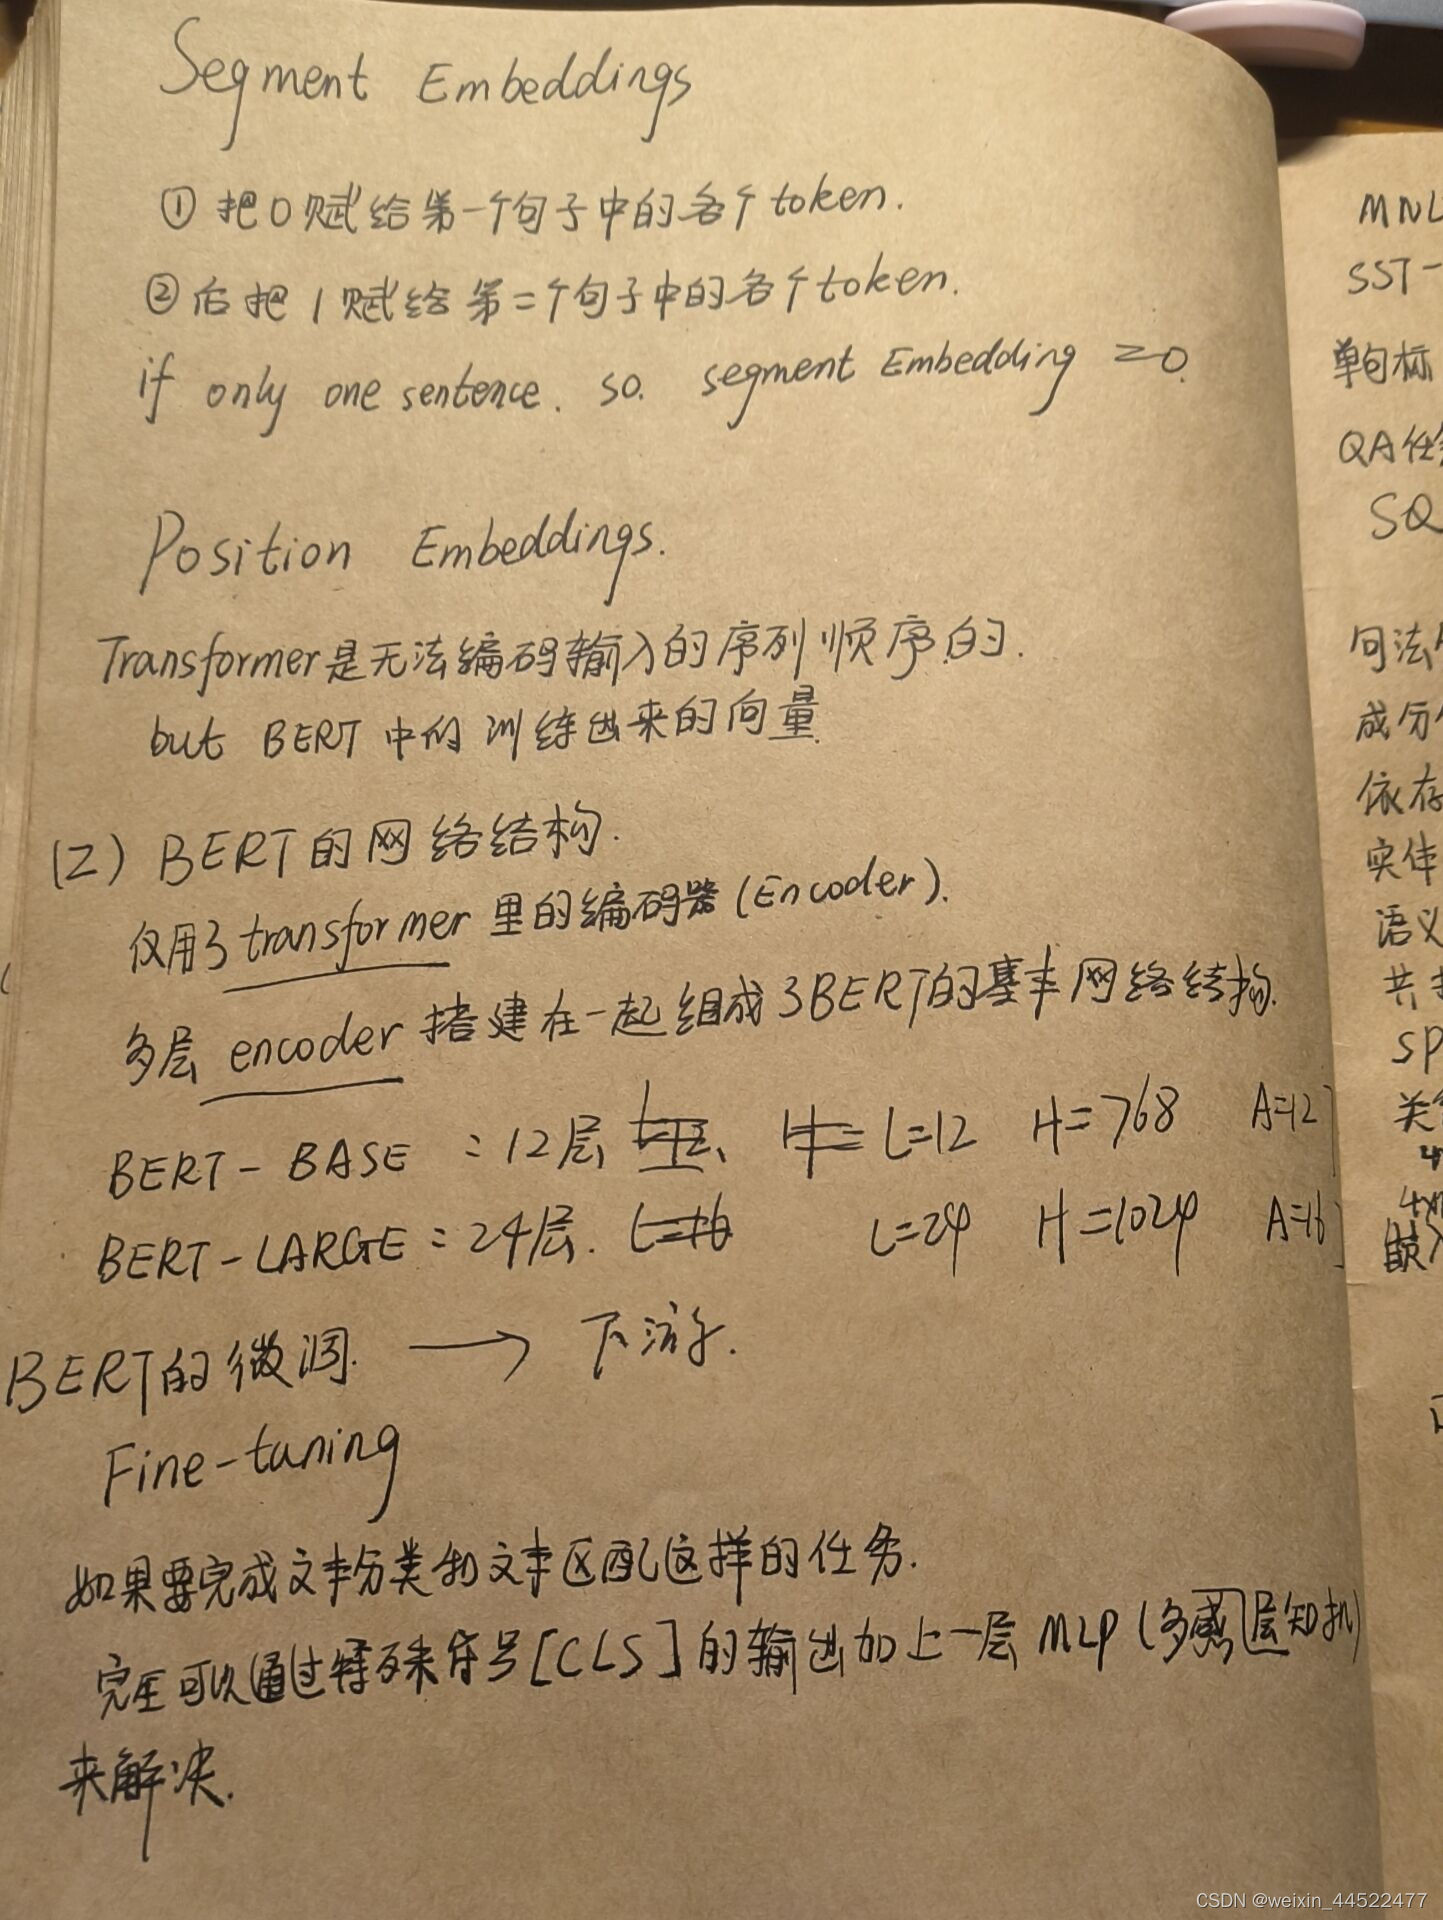 Segment Embeddings
① 把0赋给第一个句子中的各个token.
② 后把1赋给第二个句子中的各个token.
if only one sentence. so. segment Embedding =0.
Position Embeddings.
Transformer是无法编码输入的序列顺序的.
but BERT中的训练出来的向量
(2) BERT的网络结构.
仅用了transformer里的编码器(Encoder).
多层encoder搭建在一起组成了BERT的基本网络结构.
BERT-BASE : 12层 L=12 H=768 A=12
BERT-LARGE : 24层. L=24 H=1024 A=16
BERT的微调. → 下游.
Fine-tuning
如果要完成文本分类和文本匹配这样的任务.
完全可以通过特殊符号[CLS]的输出加上一层MLP(多感层知机)
来解决.
MNL
SST-
单句标
QA任
SQ
句法
成分
依存
实体
语义
共
SP
关
嵌入
CSDN @weixin_44522477